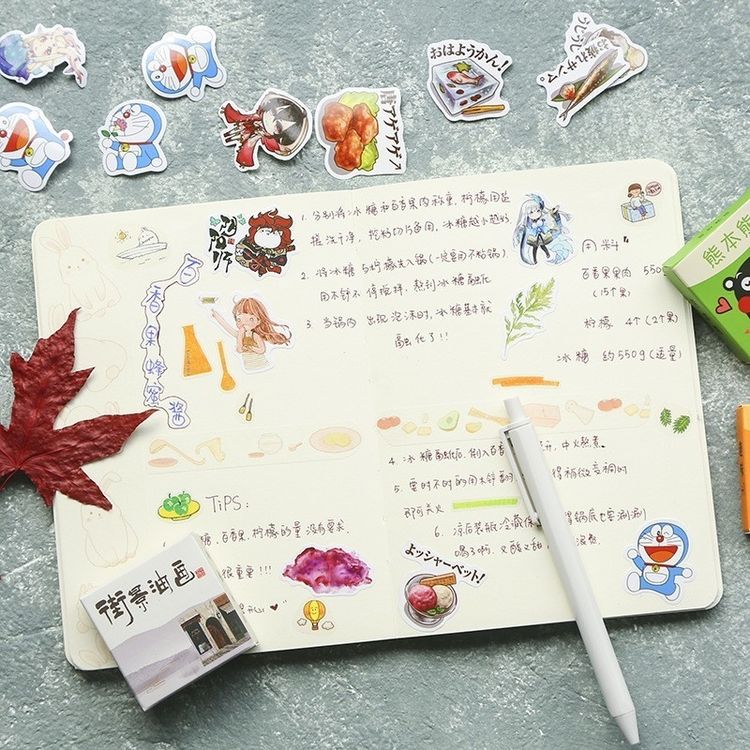 おはようかん!
お疲れサンマ。
アゲアゲ
熊本熊
百香果蜂蜜酱
1. 分别将冰糖和百香果肉称重,柠檬用盐
搓洗干净,挖籽切片备用,冰糖越小越好.
2. 将冰糖与柠檬先入锅(一定要用不粘锅)
用木铲不停搅拌,熬到冰糖融化
3. 当锅内出现泡沫时,冰糖基本就
融化了!!
用料
百香果果肉 550
(15个果)
柠檬 4个(2个果)
冰糖 约550g(适量)
4. 冰糖融化后.倒入百香 开,中火熬煮.
5. 要时不时的用木铲翻 得稍微变稠时
即可关火
6. 凉后装瓶冷藏保 得锅底也要涮涮
喝了啊,又酸又甜 浪费.
TiPS:
糖、百香果、柠檬的量没有要求.
很重要!!!
よッシャーベット!
街景油画